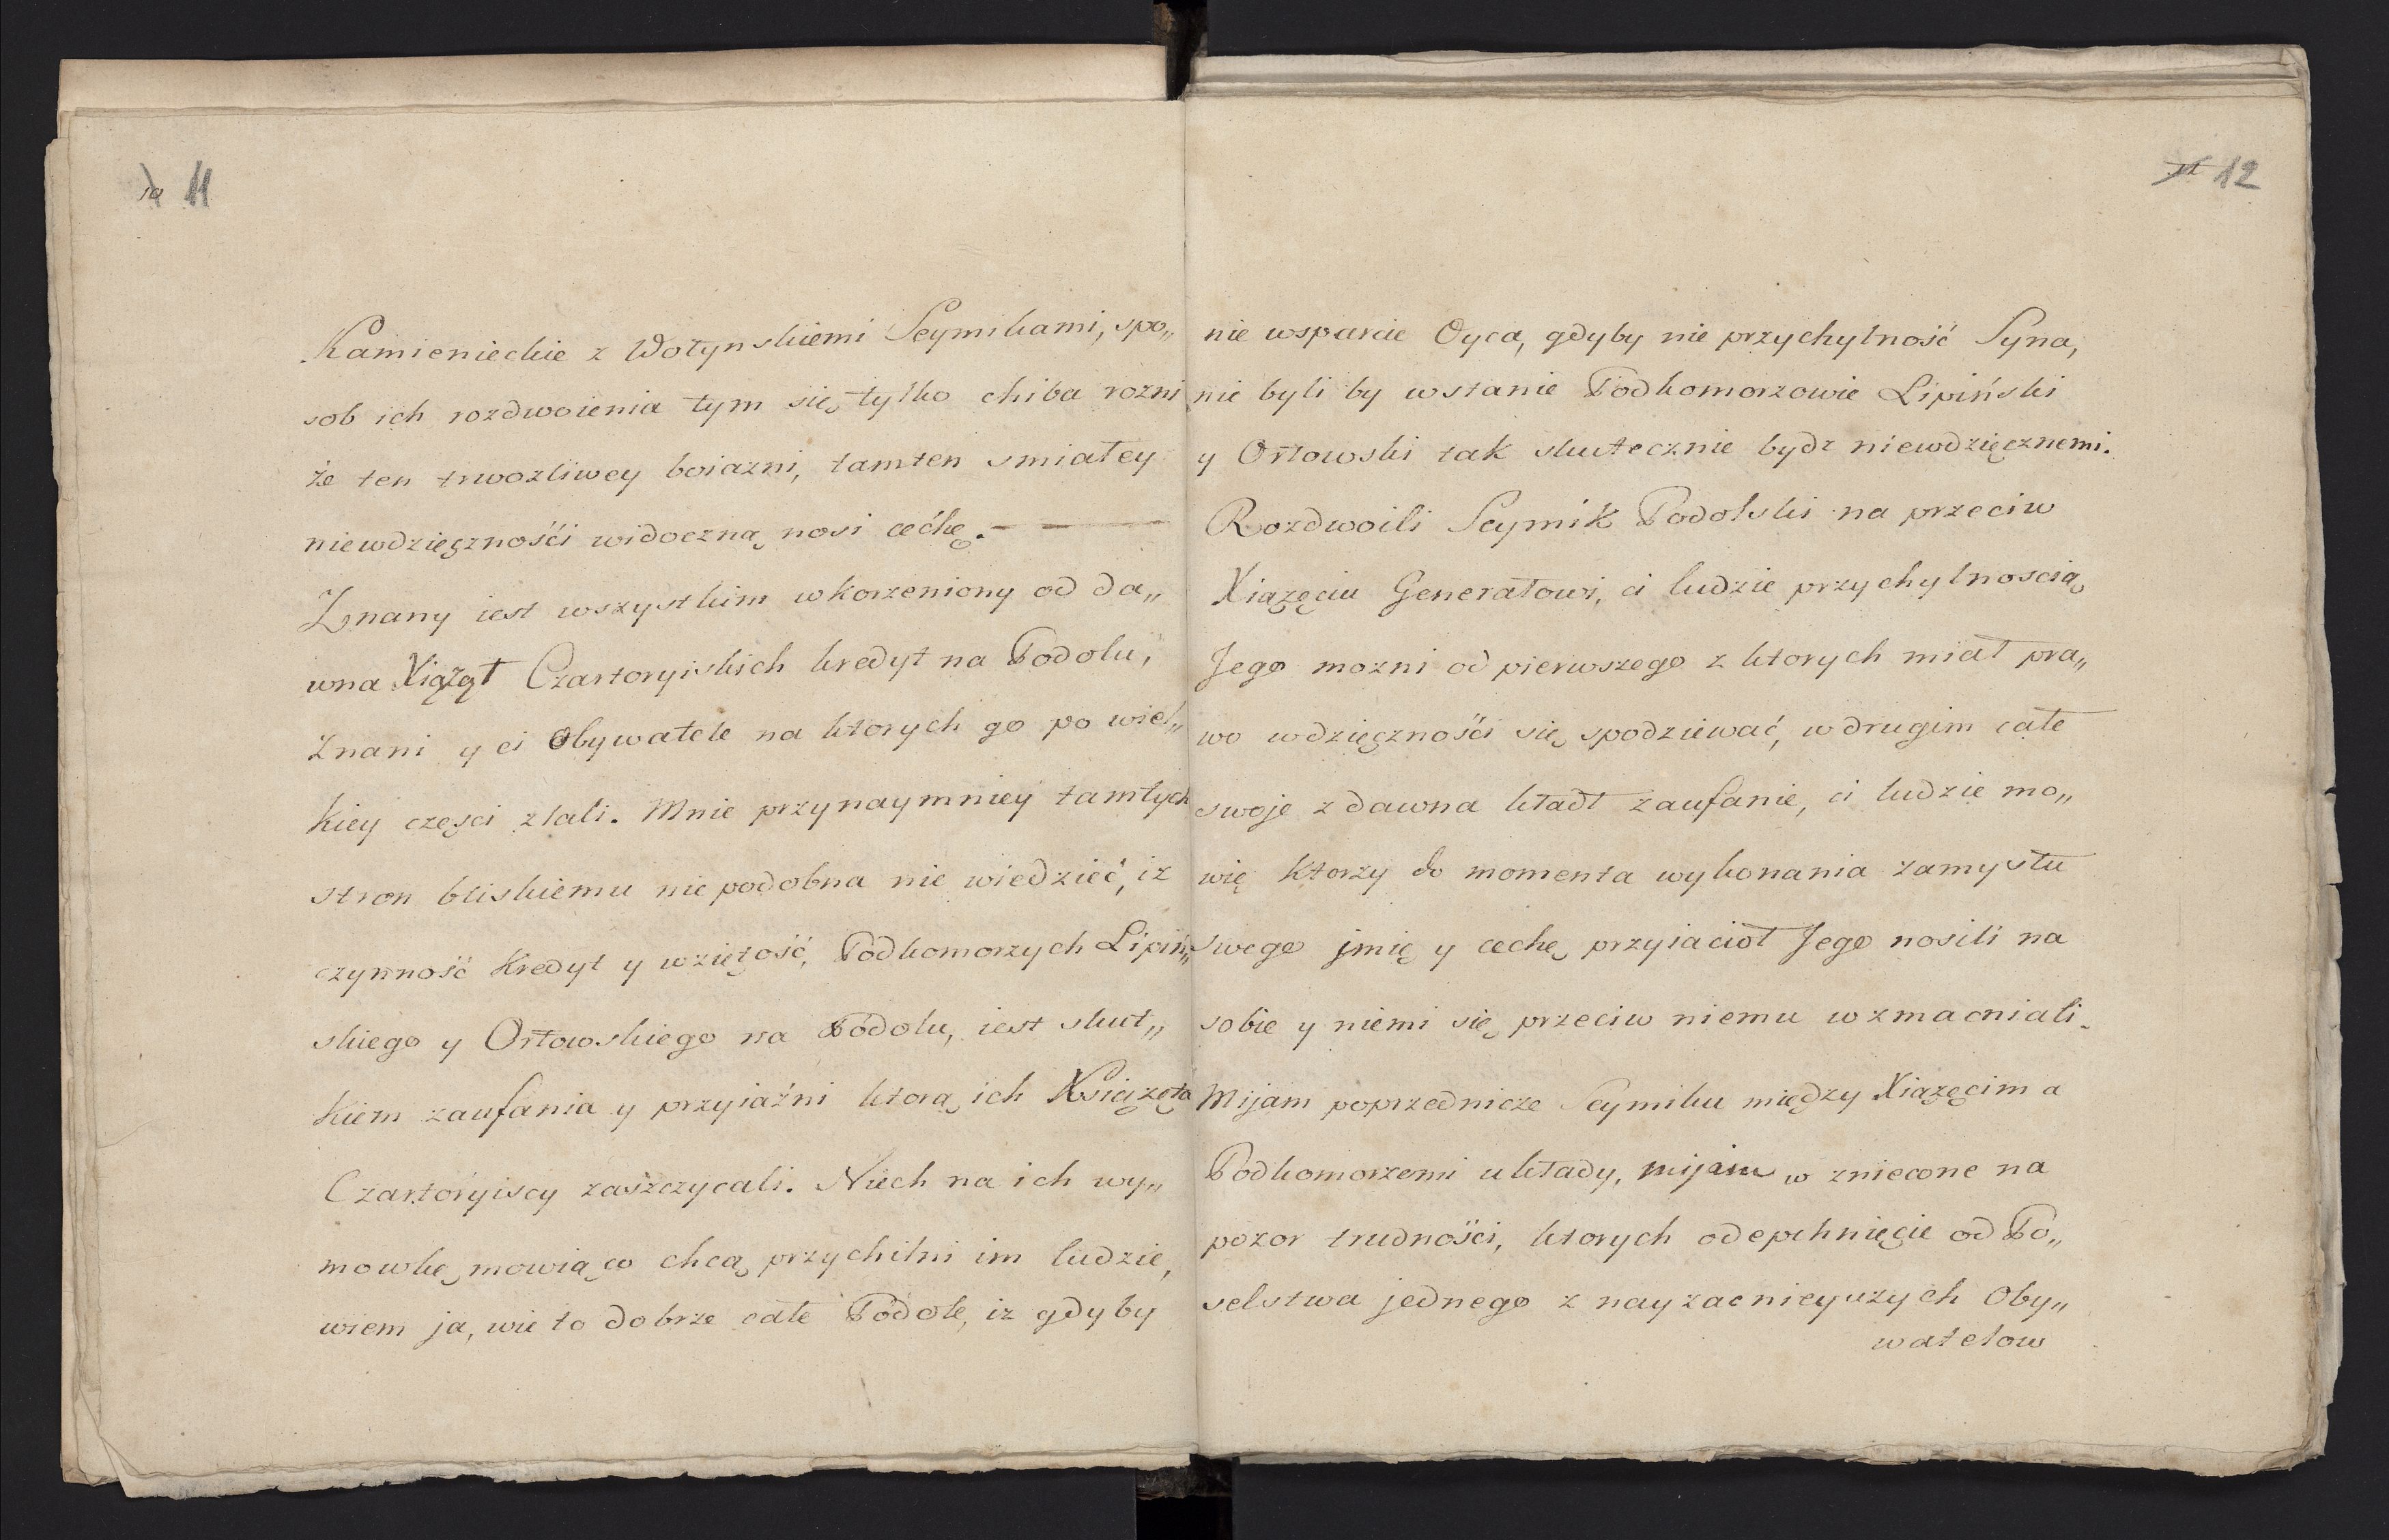 11
Kamienieckie z Wołynskiemi Seymikami, spo„
sob ich rozdwoienia tym się tylko chiba rozni
że ten trwozliwey boiazni, tamten smiałey
niewdzięcznośći widoczną nosi cechę. — —
Znany iest wszystkim wkorzeniony od da„
wna Xiążąt Czartoryiskich kredyt na Podolu,
Znani y ci Obywatele na ktorych go po wiel„
kiey częsci zlali. Mnie przynaymniey tamtych
stron bliskiemu nie podobna nie wiedzieć, iz
czynność kredyt y wziętość, Podkomorzych Lipiń„
skiego y Orłowskiego na Podolu, iest skut„
kiem zaufania y przyiaźni ktorą ich Xsiążęta
Czartoryiscy zaszczycali. Niech na ich wy„
mowkę mowią co chcą przychilni im ludzie,
wiem ja, wie to dobrze całe Podole, iz gdyby
12
nie wsparcie Oyca, gdyby nie przychylność Syna,
nie byli by wstanie Podkomorzowie Lipiński
y Orłowski tak skutecznie bydz niewdzięcznemi.
Rozdwoili Seymik Podolski na przeciw
Xiązęciu Generałowi, ci ludzie przychylnoscią
Jego mozni od pierwszego z ktorych miał pra„
wo wdzięcznośći się spodziewać, w drugim całe
swoje z dawna kładł zaufanie, ci ludzie mo„
wię ktorzy do momenta wykonania zamysłu
swego jmię y cechę przyiacioł Jego nosili na
sobie y niemi się przeciw niemu wzmacniali.
Mijam poprzednicze Seymiku między Xiązęcim a
Podkomorzemi układy, mijam w zniecone na
pozor trudności, ktorych odepchnięcie od Po„
selstwa jednego z nayzacnieyszych Oby„
watelow